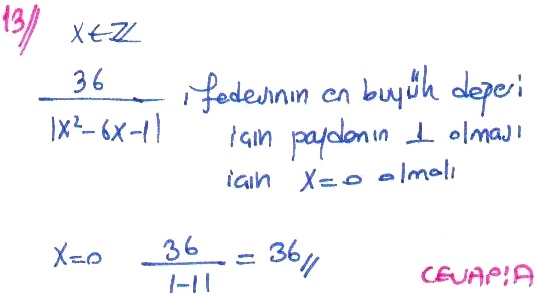 13//
x∈ℤ
36 / |x²-6x-1| ifadesinin en büyük değeri
için paydanın 1 olması
için x=0 olmalı
x=0 36 / |-1| = 36//
CEVAP:A